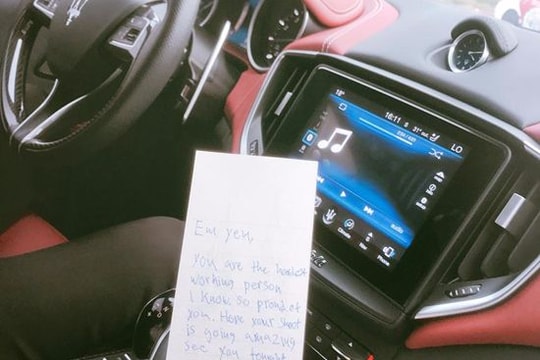 16:11
LO
audio
Climate
Phone
Em yeu,
You are the hardest
working person
I know. So proud of
you. Hope your shoot
is going amazing
see you tonight